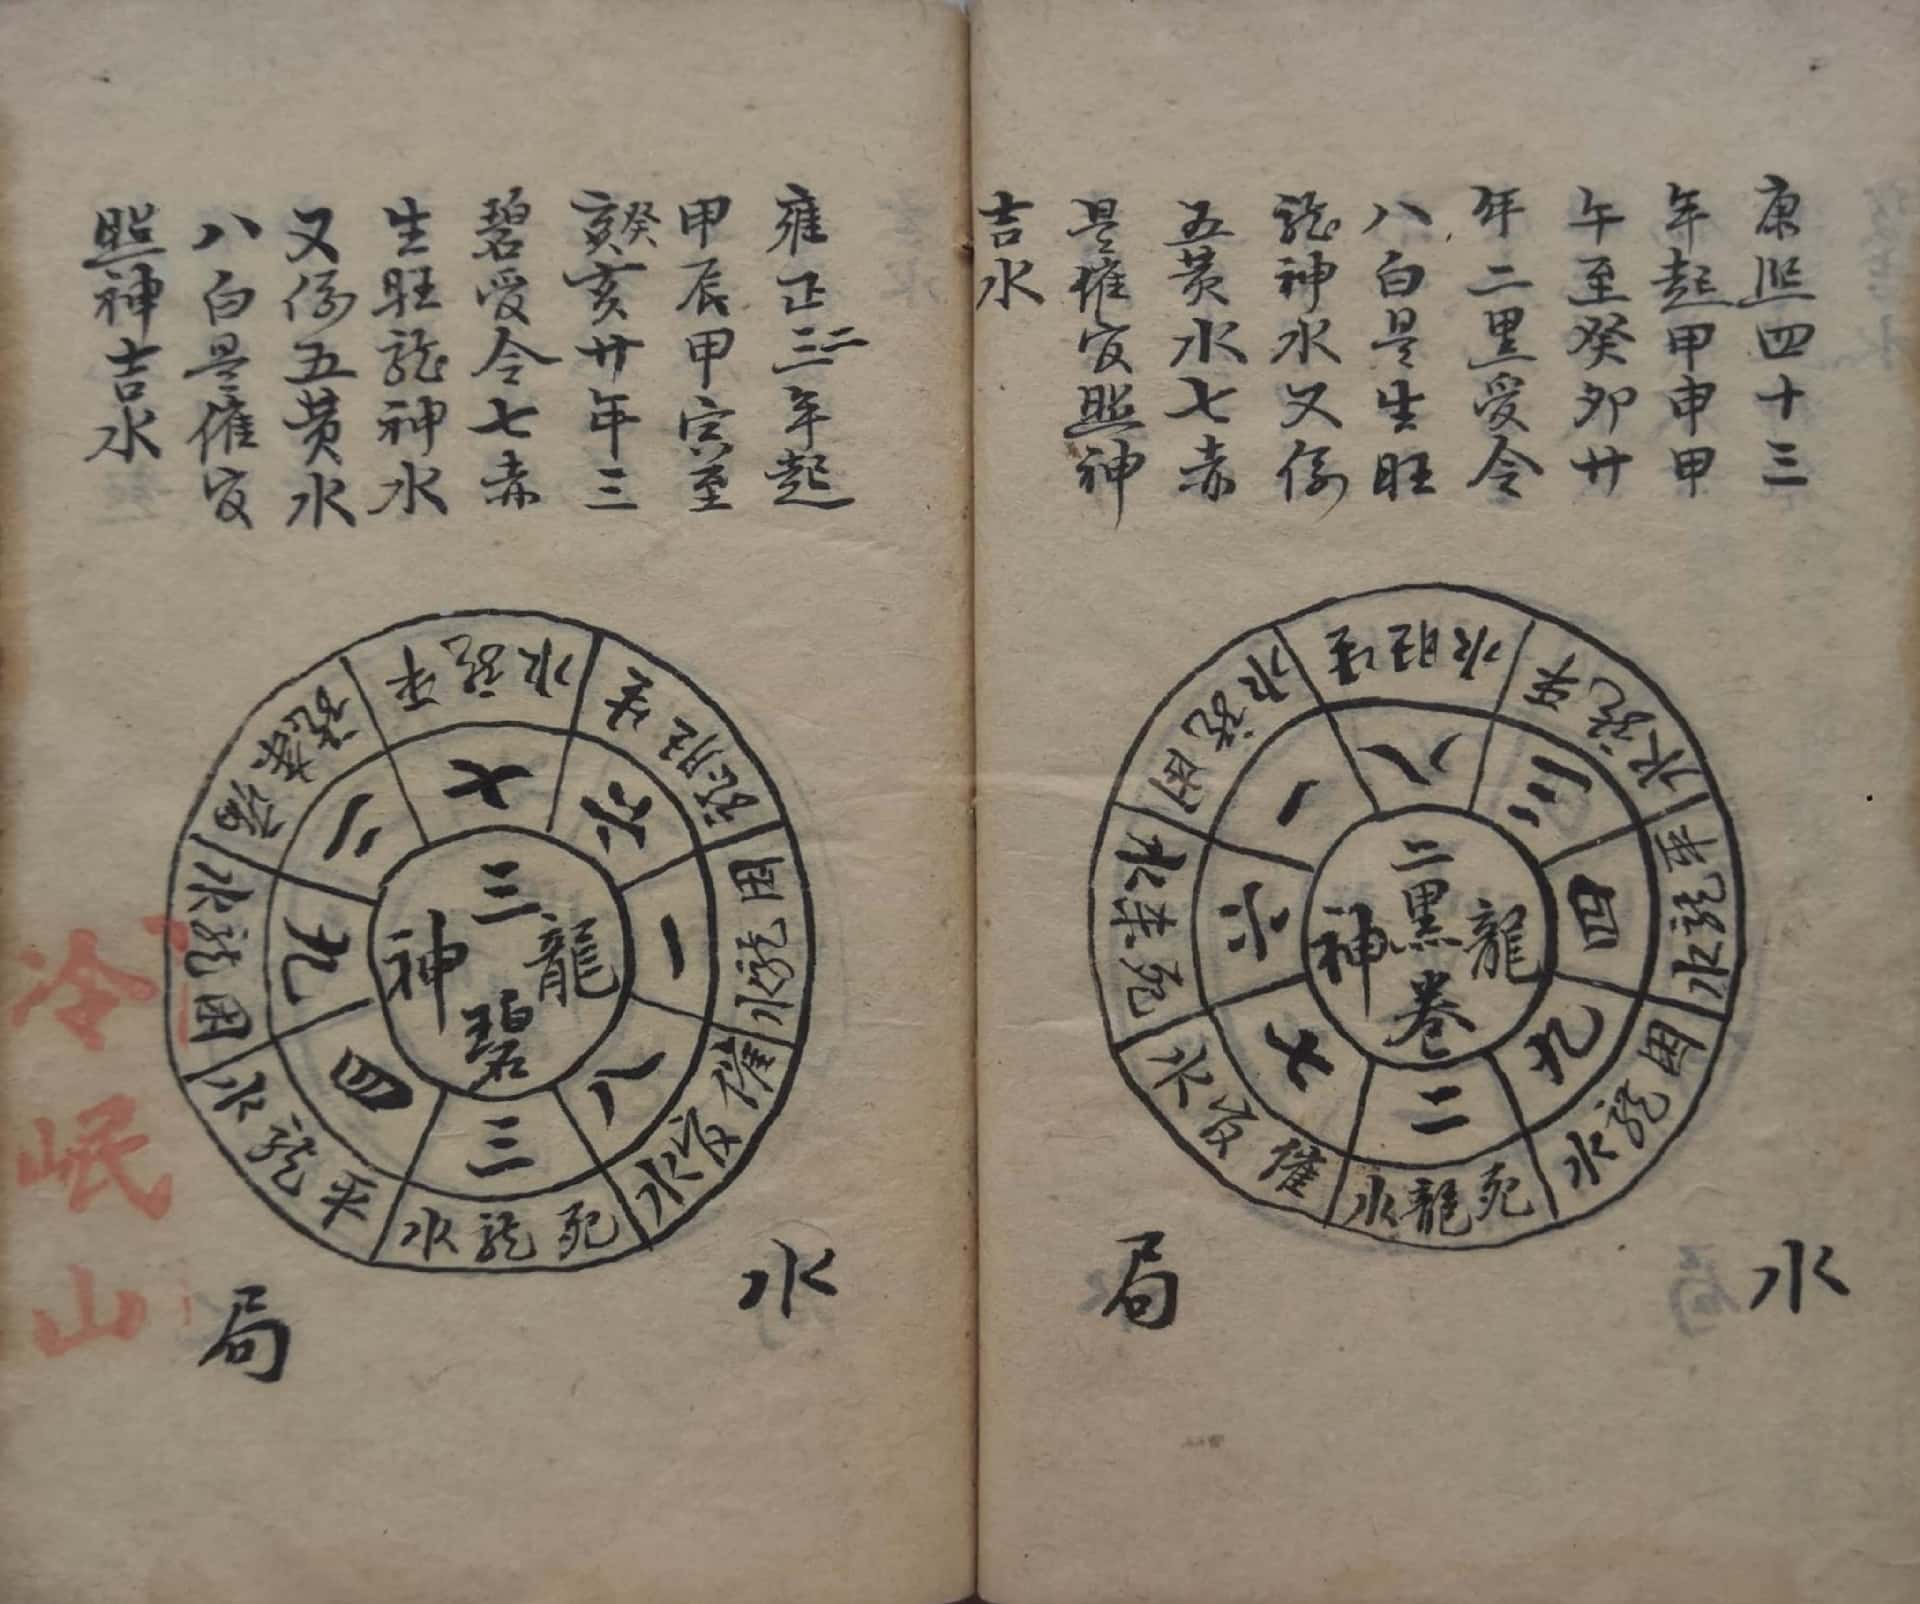 康熙四十三
年起甲申甲
午至癸卯廿
年二黑受令
八白是生旺
龍神水又係
五黄水七赤
是催官照神
吉水
八
生旺水
三
平龍水
四
生龍水
九
困龍水
二
死龍水
七
催官水
六
死水
一
困龍水
二黑
龍
神
水
局
雍正三二年起
甲辰甲寅至
癸亥廿年三
碧受令七赤
生旺龍神水
又係五黄水
八白是催官
照神吉水
七
平龍水
六
生旺龍
一
困龍水
八
催官水
三
死龍水
四
平龍水
九
困龍水
二
龍
三碧
龍
神
水
局
冷岷山